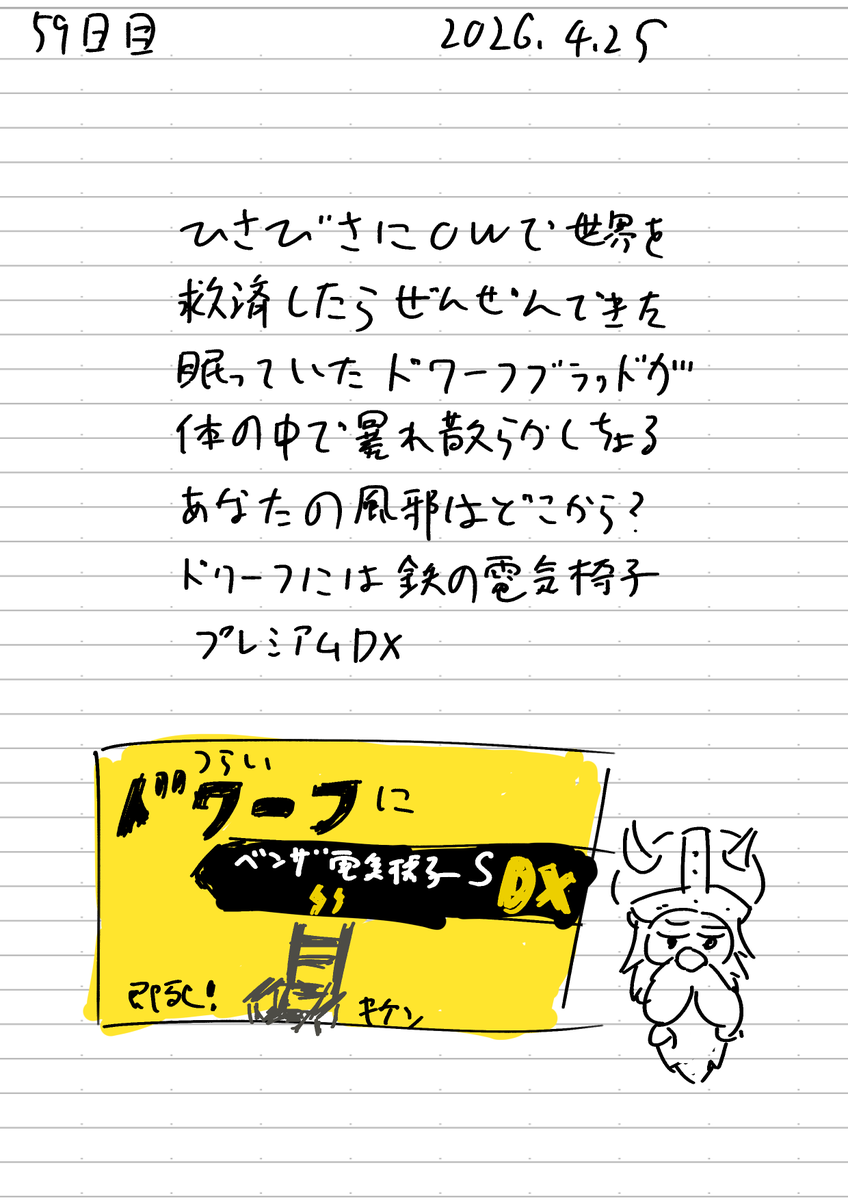 59日目 2026.4.25
ひさびさにOWで世界を
救済したらぜんぜんできた
眠っていたドワーフブラッドが
体の中で暴れ散らかしちょる
あなたの風邪はどこから?
ドワーフには鉄の電気椅子
プレミアムDX
つらい
ドワーフに
ベンザ電気椅子S DX
即死!
キケン